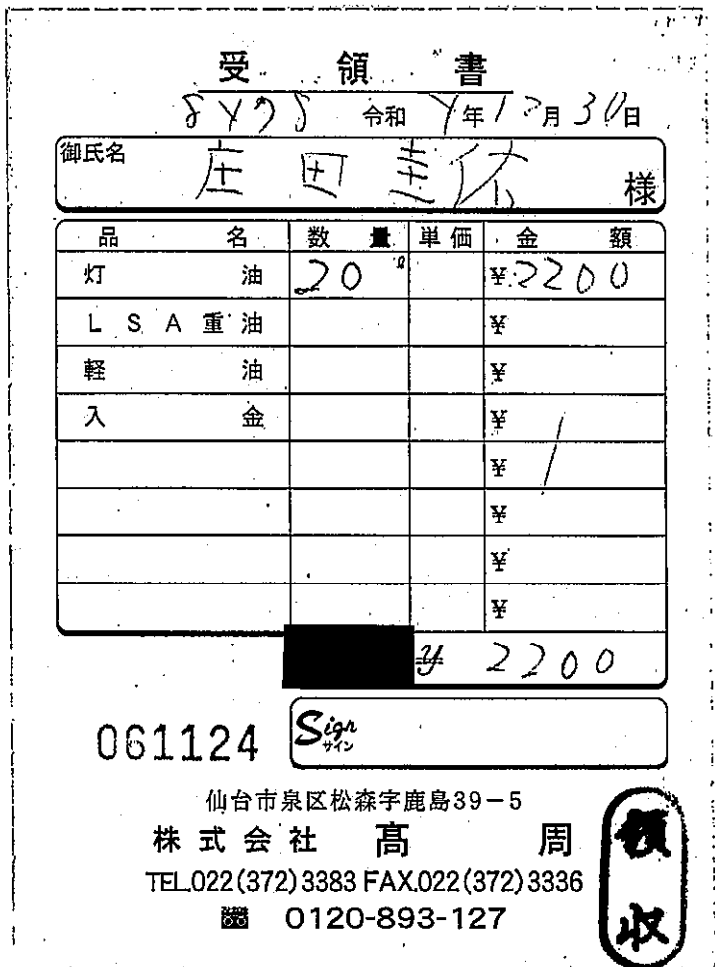 受領書
令和 年12月30日
御氏名 庄田 様
品名 数量 単価 金額
灯油 20ℓ ¥2200
LSA重油 ¥
軽油 ¥
入金 ¥
¥
¥
¥
¥
¥ 2200
061124 Sign サイン
仙台市泉区松森字鹿島39-5
株式会社 髙周
TEL.022(372)3383 FAX.022(372)3336
0120-893-127
領収